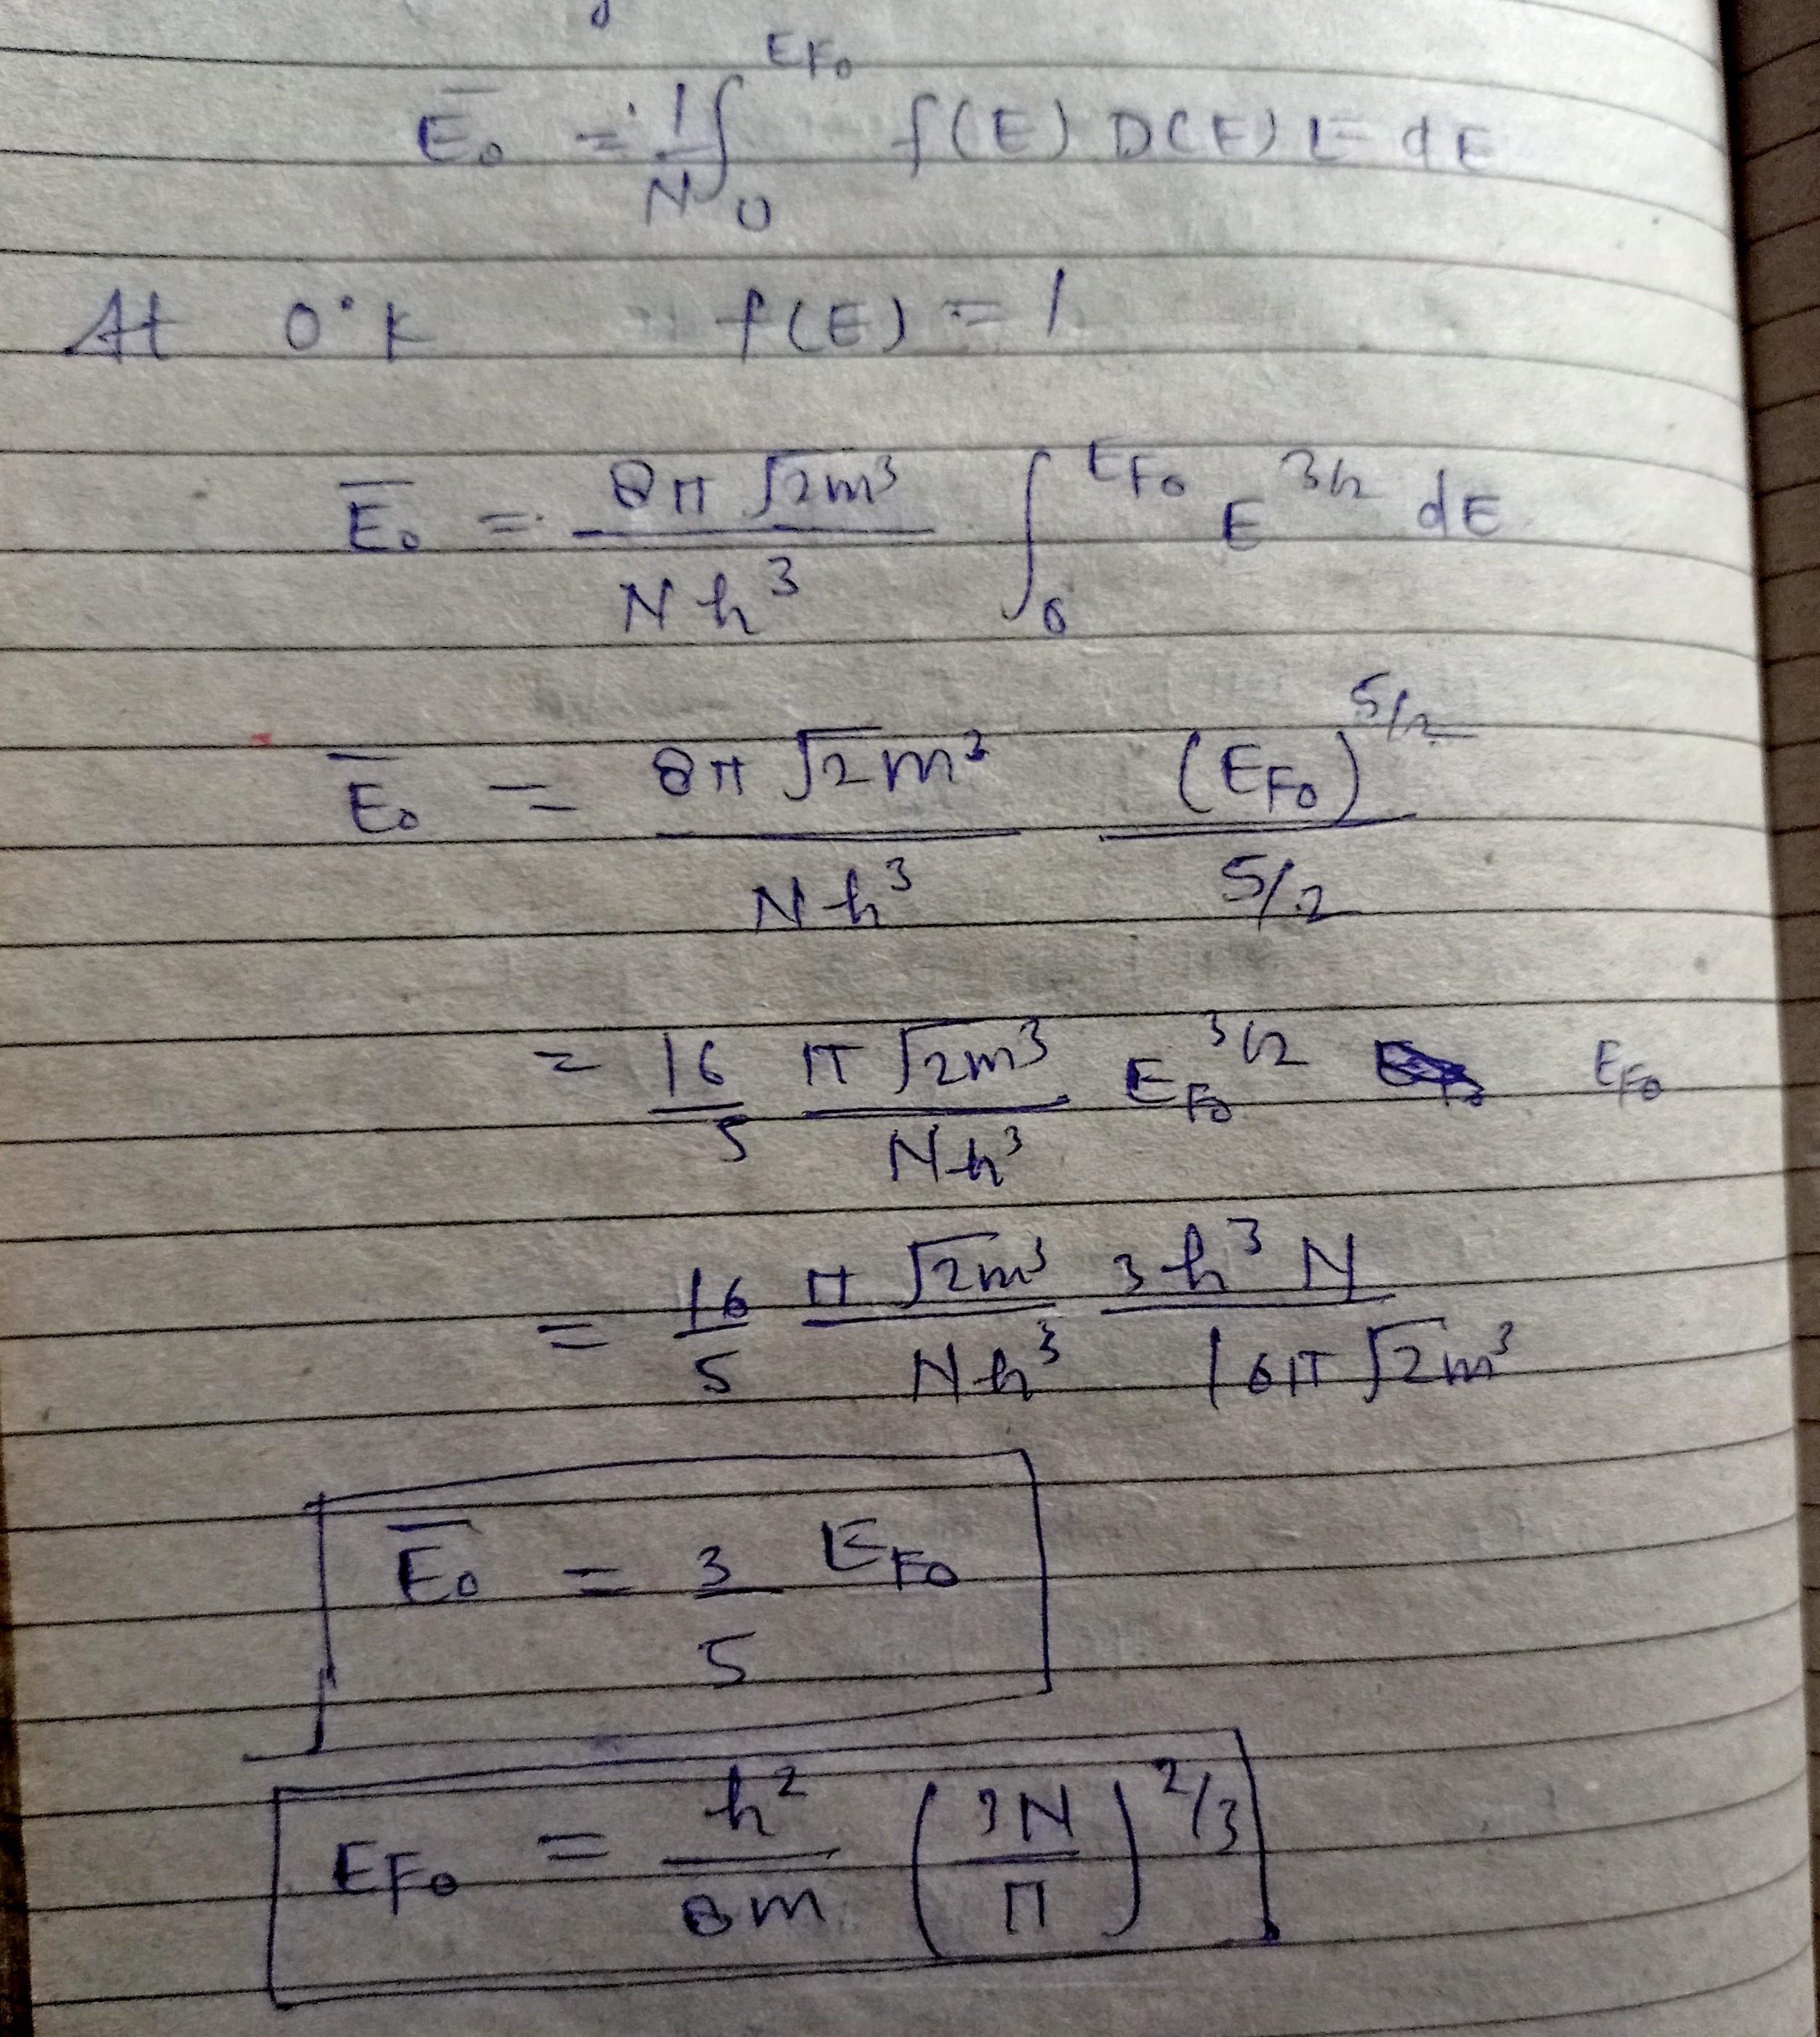 E̅₀ = 1/N ∫₀^{E_{F₀}} f(E) D(E) E dE
At 0°K f(E) = 1
E̅₀ = 8π √2m³ / Nh³ ∫₀^{E_{F₀}} E^{3/2} dE
E̅₀ = 8π √2m³ / Nh³ (E_{F₀})^{5/2} / 5/2
= 16/5 π √2m³ / Nh³ E_{F₀}^{3/2} E_{F₀}
= 16/5 π √2m³ / Nh³ 3h³N / 16π √2m³
E̅₀ = 3/5 E_{F₀}
E_{F₀} = h²/8m (3N/π)^{2/3}